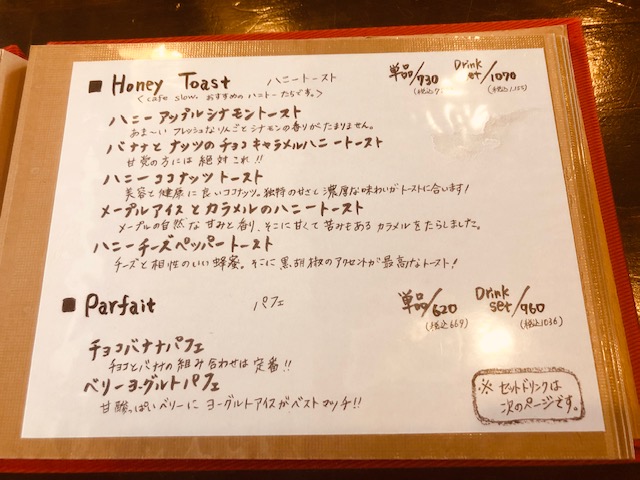 ■ Honey Toast ハニートースト 単品/930 Drink set/1070
< cafe slow. おすすめの ハニトーたちです。> (税込1,155)
ハニーアップルシナモントースト
あま〜い フレッシュなりんごと シナモンの香りがたまりません。
バナナとナッツのチョコキャラメルハニートースト
甘党の方には 絶対これ!!
ハニーココナッツトースト
美容と健康に良いココナッツ。独特の甘さと 濃厚な味わいがトーストに合います!
メープルアイスとカラメルのハニートースト
メープルの自然な 甘みと香り、そこに甘くて 苦みもある カラメルをたらしました。
ハニーチーズペッパートースト
チーズと相性のいい蜂蜜。そこに 黒胡椒のアクセントが 最高なトースト!
■ Parfait パフェ 単品/620 Drink set/960
(税込669) (税込1036)
チョコバナナパフェ
チョコとバナナの組み合わせは 定番!!
ベリーヨーグルトパフェ
甘酸っぱいベリーに ヨーグルトアイスがベストマッチ!!
※ セットドリンクは
次のページです。